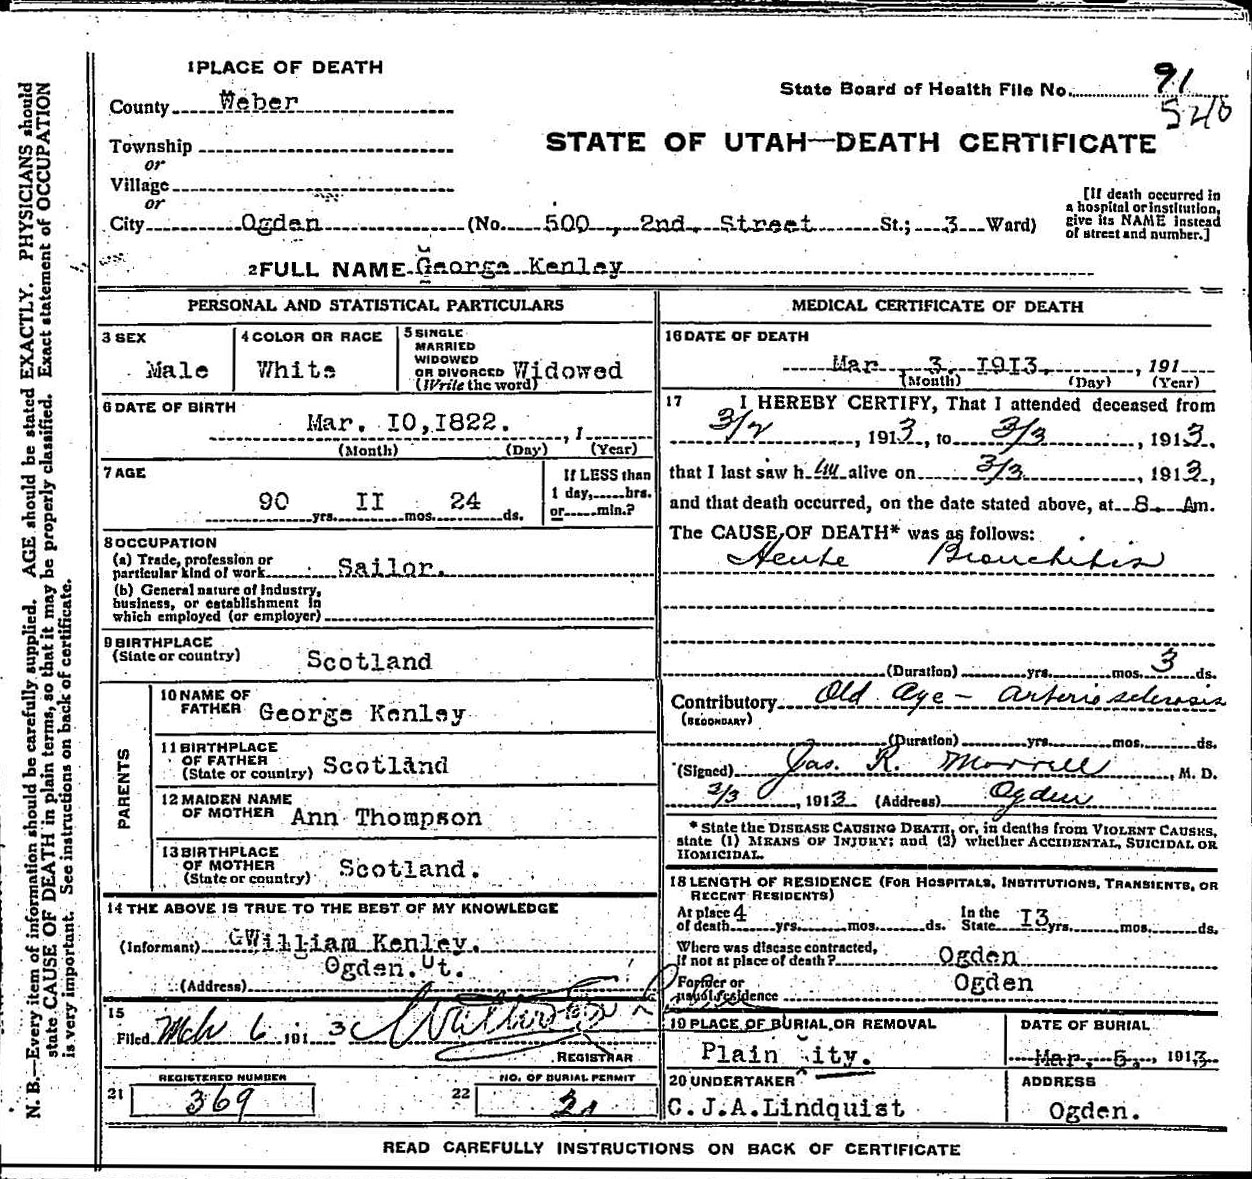 1 PLACE OF DEATH
County Weber
State Board of Health File No. 91
540
STATE OF UTAH—DEATH CERTIFICATE
Township
or
Village
or
City Ogden (No. 500, 2nd. Street St.; 3 Ward)
[If death occurred in
a hospital or institution,
give its NAME instead
of street and number.]
2 FULL NAME George Kenley
PERSONAL AND STATISTICAL PARTICULARS
3 SEX
Male
4 COLOR OR RACE
White
5 SINGLE
MARRIED
WIDOWED
OR DIVORCED Widowed
(Write the word)
6 DATE OF BIRTH
Mar. 10, 1822. , 1
(Month) (Day) (Year)
7 AGE
90 yrs. II mos. 24 ds.
If LESS than
1 day,.....hrs.
or......min.?
8 OCCUPATION
(a) Trade, profession or
particular kind of work Sailor.
(b) General nature of Industry,
business, or establishment in
which employed (or employer)
9 BIRTHPLACE
(State or country) Scotland
PARENTS
10 NAME OF
FATHER George Kenley
11 BIRTHPLACE
OF FATHER
(State or country) Scotland
12 MAIDEN NAME
OF MOTHER Ann Thompson
13 BIRTHPLACE
OF MOTHER
(State or country) Scotland.
14 THE ABOVE IS TRUE TO THE BEST OF MY KNOWLEDGE
(Informant) GWilliam Kenley.
Ogden. Ut.
(Address)
15
Filed Mch 6 191 3
REGISTRAR
REGISTERED NUMBER
21 369
NO. OF BURIAL PERMIT
22
MEDICAL CERTIFICATE OF DEATH
16 DATE OF DEATH
Mar 3. I9I3. , 191
(Month) (Day) (Year)
17 I HEREBY CERTIFY, That I attended deceased from
3/2, 1913, to 3/3, 1913,
that I last saw h im alive on 3/3, 1913,
and that death occurred, on the date stated above, at 8 Am.
The CAUSE OF DEATH* was as follows:
Acute Bronchitis
(Duration) yrs. mos. 3 ds.
Contributory Old Age - Arterio sclerosis
(SECONDARY)
(Duration) yrs. mos. ds.
(Signed) Jas. R. Morrell, M. D.
3/3, 1913 (Address) Ogden
* State the DISEASE CAUSING DEATH, or, in deaths from VIOLENT CAUSES,
state (1) MEANS OF INJURY; and (2) whether ACCIDENTAL, SUICIDAL OR
HOMICIDAL.
18 LENGTH OF RESIDENCE (FOR HOSPITALS, INSTITUTIONS, TRANSIENTS, OR
RECENT RESIDENTS)
At place
of death 4 yrs. mos. ds.
In the
State I3 yrs. mos. ds.
Where was disease contracted,
if not at place of death? Ogden
Former or
usual residence Ogden
19 PLACE OF BURIAL OR REMOVAL
Plain City.
DATE OF BURIAL
Mar. 5., 1913
20 UNDERTAKER
C.J.A.Lindquist
ADDRESS
Ogden.
READ CAREFULLY INSTRUCTIONS ON BACK OF CERTIFICATE
N. B.—Every item of information should be carefully supplied. AGE should be stated EXACTLY. PHYSICIANS should
state CAUSE OF DEATH in plain terms, so that it may be properly classified. Exact statement of OCCUPATION
is very important. See instructions on back of certificate.